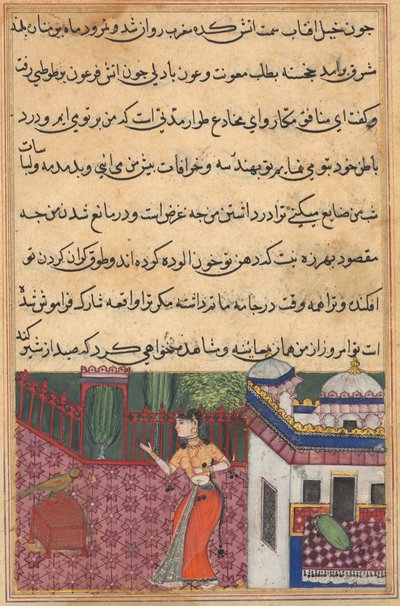 چون خلیل افتاب سمت اتش کده مغرب روانه شد و نمرود ماه بوستان بلند
مشرق برآمد خجسته بطلب معونت و عون بادلی چون اتش فرعون بر طوطی رفت
و گفت ای منافق مکار و ای مخادع طرار مدتی است که من بر تو می ایم و درد
باطن خود بتو می نمایم تو بهندسه و خرافات پیش من می ائی و بدمدمه و لباسات
شب من ضایع میکنی ترا در داشتن من چه غرض است و در مانع شدن من چه
مقصود بهرزه نیست که دهن تو خون الوده کرده اند و طوق در کردن تو
افکنده و ترا همه وقت در جامه ماتم داشته مکر ترا واقعه تارک فراموش شده
است تو امروز از من هماز بمعاینه و مشاهده خواهی کرد که صیاد از شیر کند